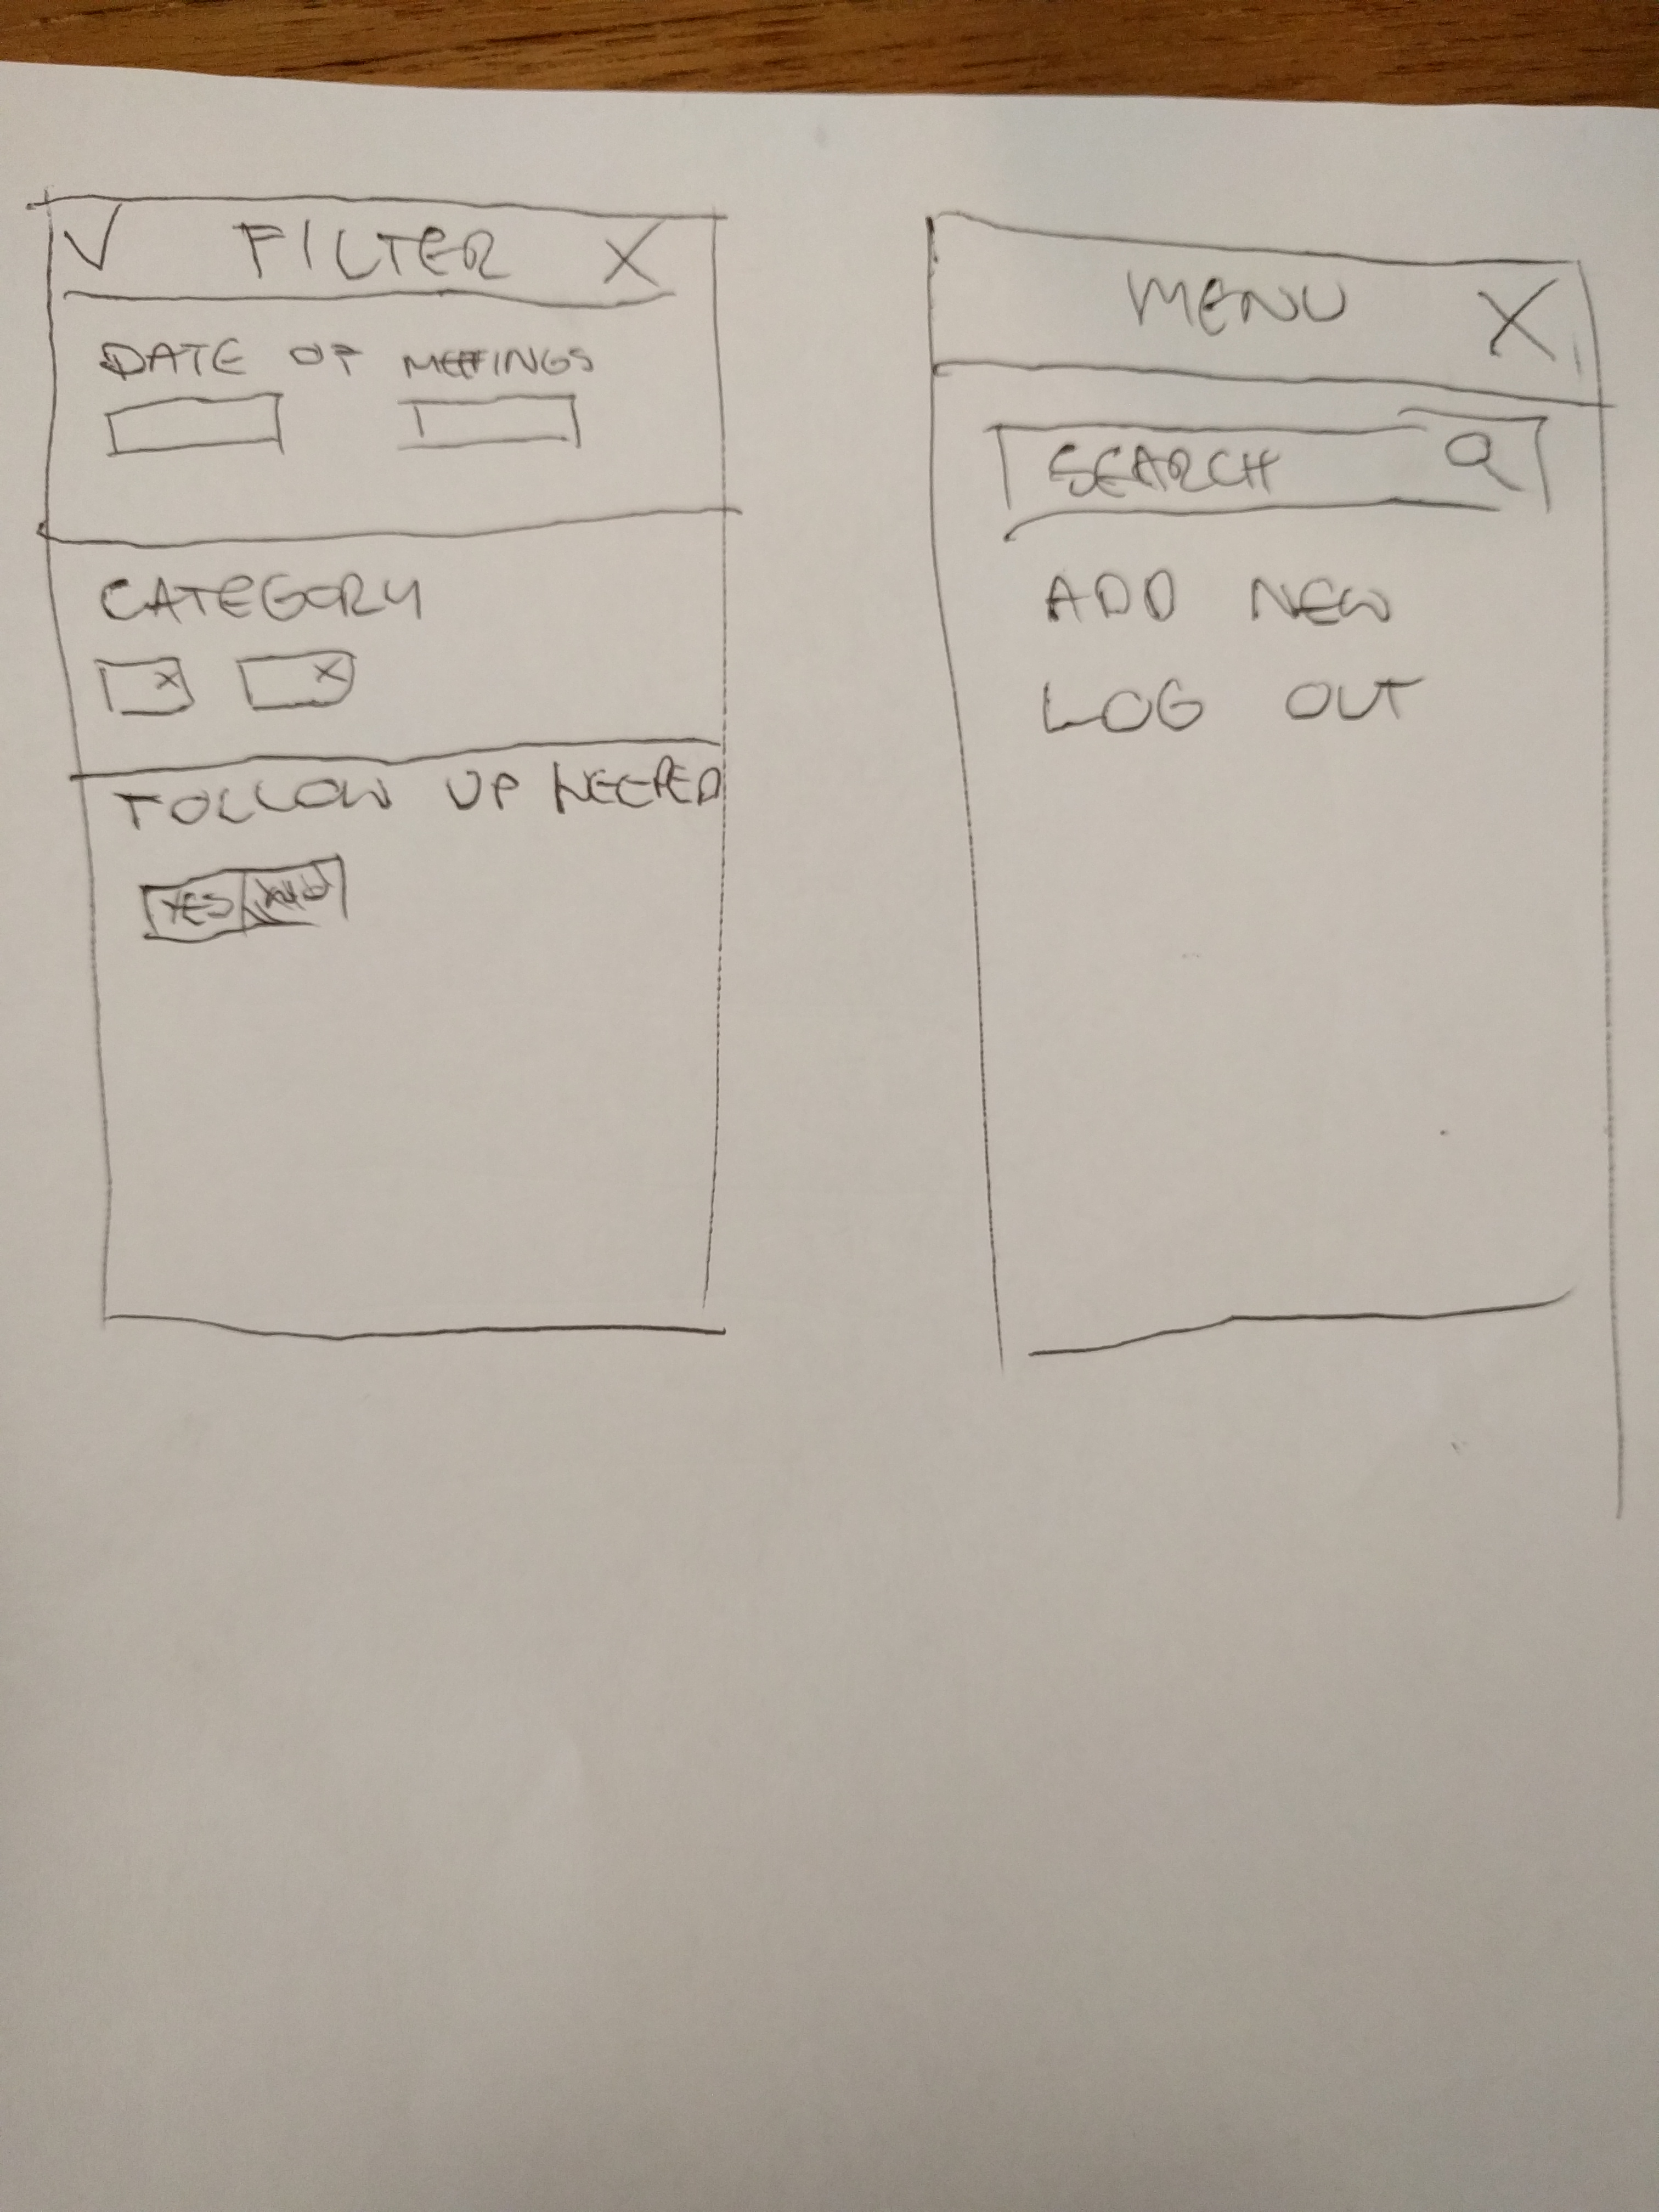 FILTER X
DATE OF MEETINGS
CATEGORY
X X
FOLLOW UP NEEDED
YES
MENU X
SEARCH
ADD NEW
LOG OUT